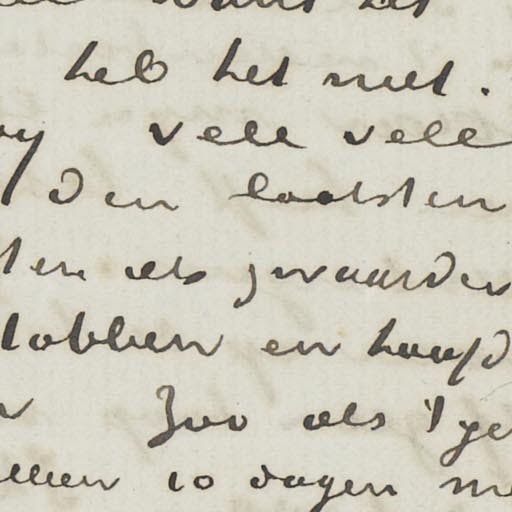 want het
heb het niet.
vele vele
den laatsten
ten als zwaarder
tobben en hoofd
Zoo als 't ge
alleen 10 dagen me